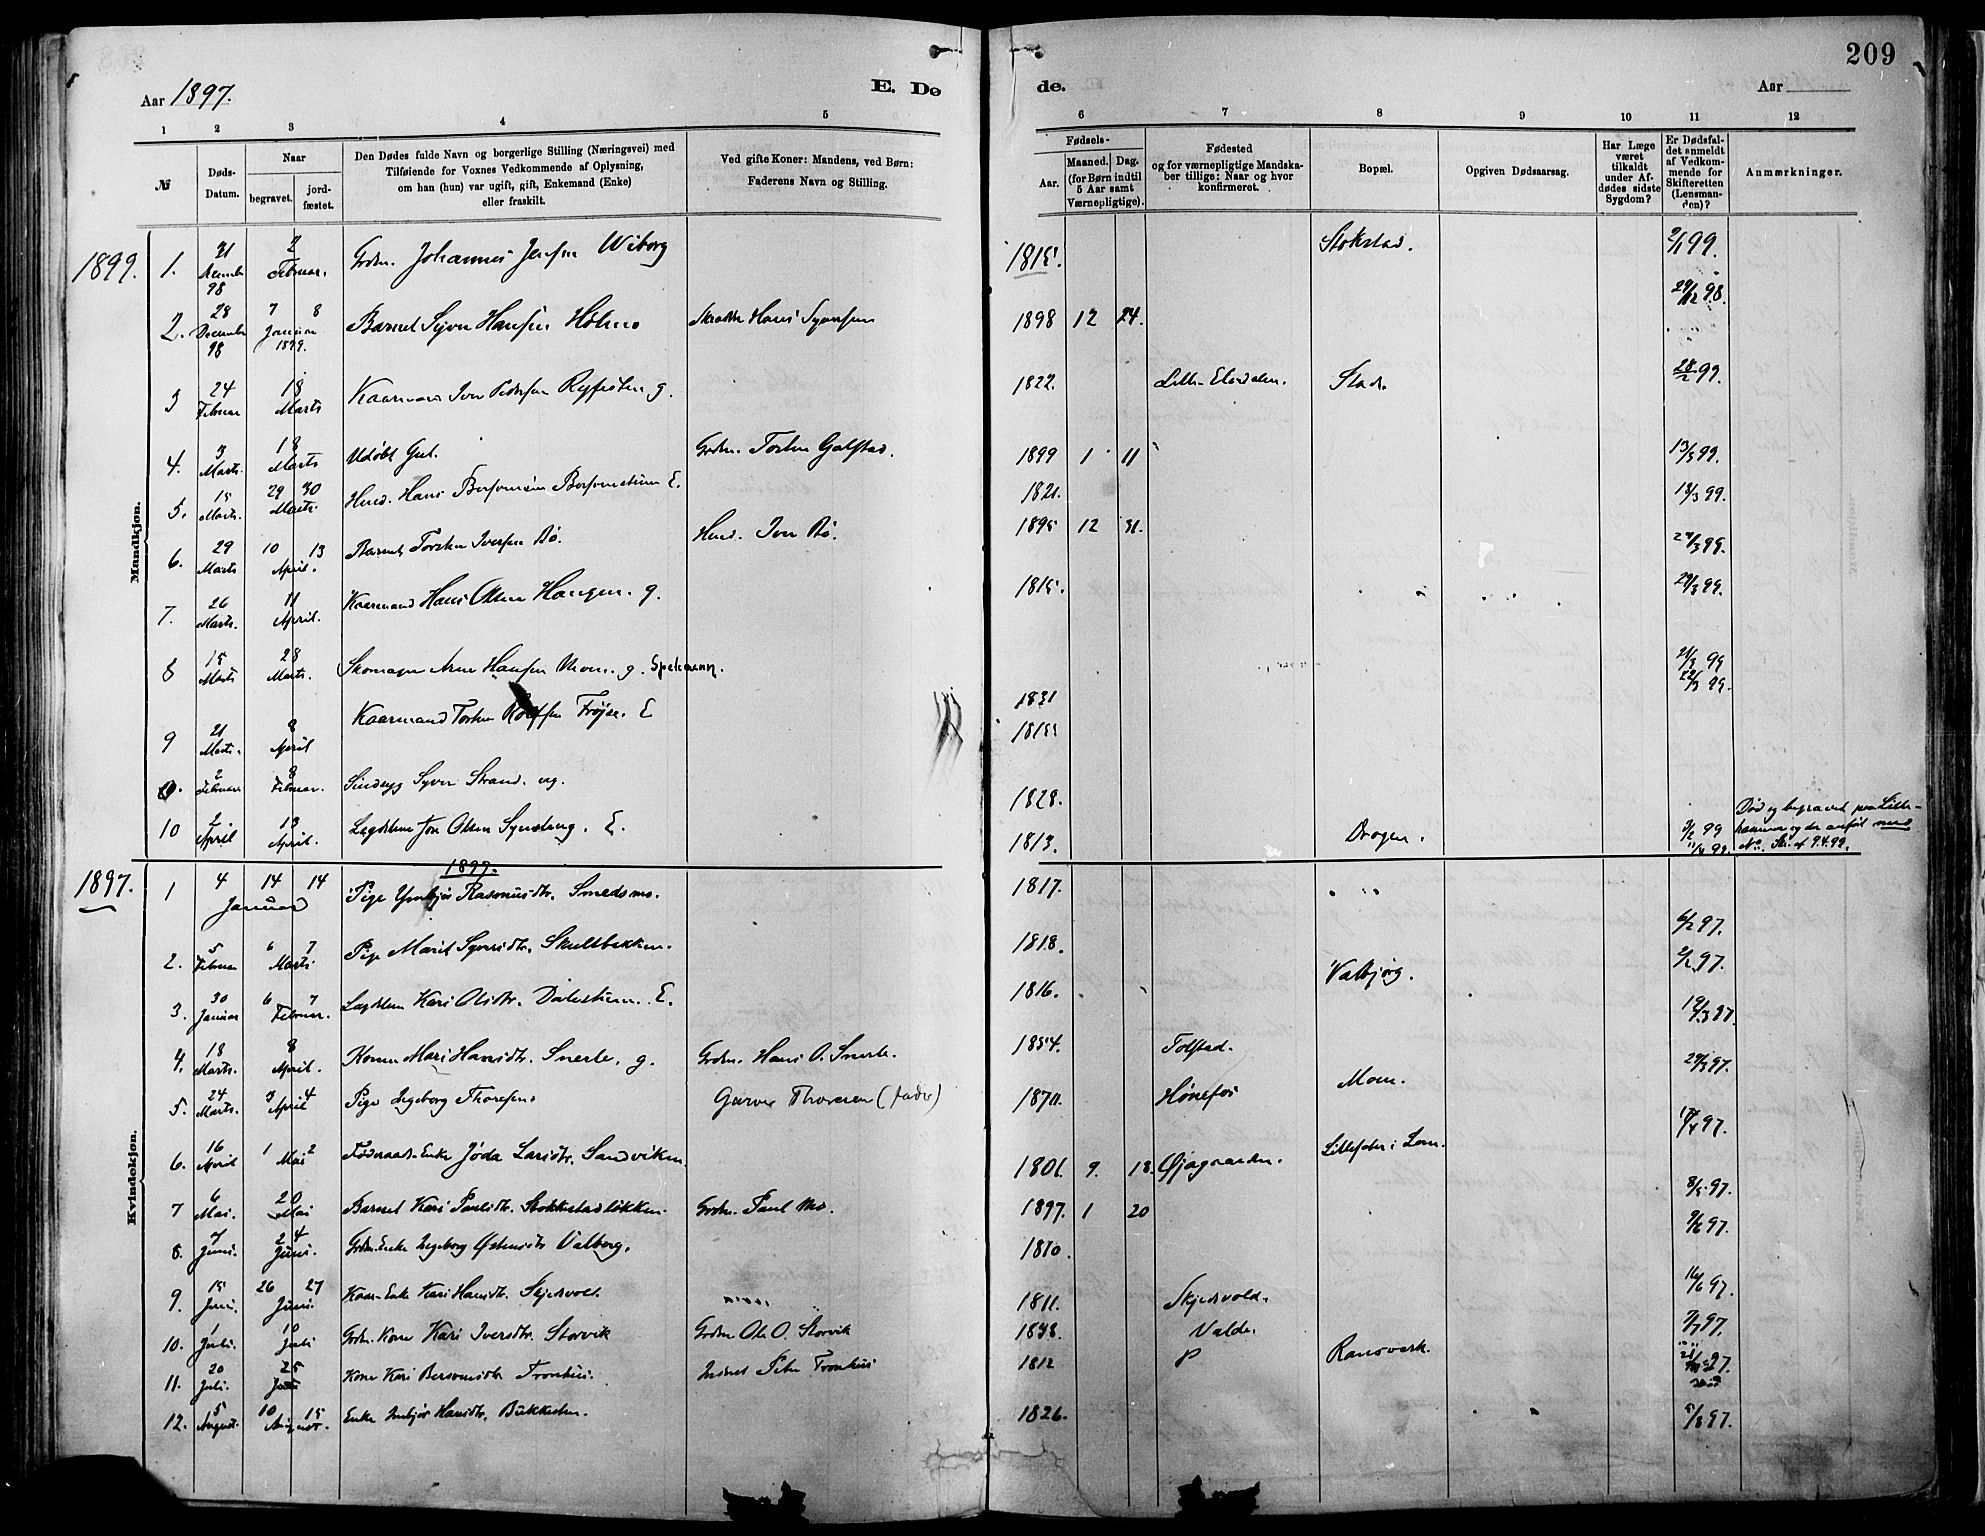 209
Aar 1897.
E. Dø
de.
Aar
1
2
3
4
5
6
7
8
9
10
11
12
№
Døds-
Datum.
Naar
begravet.
jord-
fæstet.
Den Dødes fulde Navn og borgerlige Stilling (Næringsvei) med
Tilføiende for Voxnes Vedkommende af Oplysning,
om han (hun) var ugift, gift, Enkemand (Enke)
eller fraskilt.
Ved gifte Koner: Mandens, ved Børn:
Faderens Navn og Stilling.
Fødsels-
Aar.
Maaned. Dag.
(for Børn indtil
5 Aar samt
Værnepligtige).
Fødested
og for værnepligtige Mandska-
ber tillige: Naar og hvor
konfirmeret.
Bopæl.
Opgiven Dødsaarsag.
Har Læge
været
tilkaldt
under Af-
dødes sidste
Sygdom?
Er Dødsfal-
det anmeldt
af Vedkom-
mende for
Skifteretten
(Lensman-
den)?
Anmærkninger.
Mandkjøn.
1899.
1. 31 Decemb 98 2 Februar. Grdm. Johannes Jensen Wiborg 1815. Stokstad. 2/1 99.
2. 28 December 98 7 8 Januar 1899. Barnet Syver Hansen Holmo Skrædder Hans Syversen 1898 12 24. 29/12 98.
3 24 Februar 18 Marts Kaarmand Iver Pedersen g. 1822. Lille-Elvedalen. 28/2 99.
4. 3 Marts. 18 Marts Udøbt Gut. Grdm. Torsten 1899 1 11 13/3 99.
5. 15 Marts. 29 30 Marts. Husm. Hans E. 1821. 18/3 99.
6. 29 Marts 10 13 April. Barnet Torsten Iversen Bø. Husm. Iver Bø. 1895 12 31.
7. 26 Marts. 11 April. Kaarmand Hans Olsen Haugen. g. 1815. 29/3 99.
8 15 Marts 28 Marts. Skomager Arne Hansen Moen. g. Spelemann. 1831 21/3 99
9 21 Marts. 8 April Kaarmand Torsten Frøjse. E
2 Februar 8 Februar. Sindssyg Syver Strand. ug. 1828.
10 2. April 13 April. Lægdslem Jon Olsen E. 1813. 3/2 99 11/4 99. Død og begravet paa Lille-
hammer og der anført med
No. Skr. af 9.4.99.
Kvindekjøn.
1897.
1897.
1 4 14 14 Januar Pige Rasmusdtr. Smedsmo. 1817.
2. 5 Februar 6 7 Marts Pige Marit Syversdtr. Skultbakken. 1818. 6/2 97.
3. 30 Januar 6 7 Februar. Lægdslem Kari Olsdtr. E. 1816. Valbjørg. 2/2 97.
4. 18 Marts. 8 April. Kone Mari Hansdtr. Snerle. g. Grdm. Hans O. Snerle. 1854. Tolstad. 19/3 97.
5. 24 Marts. 3 4 April Pige Ingeborg Thoresen Garver Thoresen (fader) Hønefos Moen. 29/3 97.
6. 16 April 1 2 Mai Føderaads-Enke Jøda Larsdtr. Sandviken. 1801. 9. 18. Øjagaarden. i Lom.
7 6 Mai. 20 Mai Barnet Kari Paulsdtr. Stokkestadløkken. Grdm. Paul Mo. 1897. 1 20 8/5 97.
8. 7 Juni. 24 Juni. Grdm.Enke Ingeborg Østensdtr Valborg. 1810. 9/6 97.
9. 15 Juni. 26 27 Juni. Kaar-Enke Kari Hansdtr. Skjedsvold. 1811. Skjedsvold. 16/6 97.
10. 1 Juli. 10 Juli Grdm. Kone Kari Iversdtr. Storvik Grdm Ole O. Storvik 1838. Valde. 7/7 97.
11. 20 Juli. 25 Kone Kari Tronhus. Inderst Peter Tronhus 1812 Ransverk.
12. 5 August. 10 15 August. Enke Imbjør Hansdtr. Bukkesten. 1826.